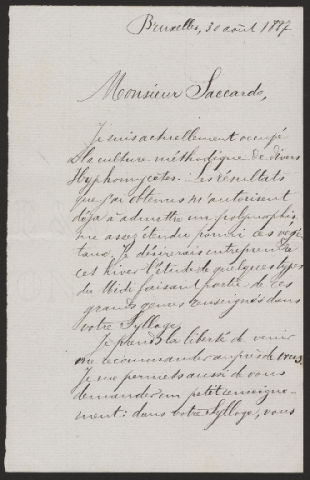 Bruxelles, 30 août 1887
Monsieur Saccardo,
Je suis actuellement occupé
à la culture méthodique de divers
Hyphomycètes. Les résultats
que j'ai obtenus m'autorisent
déjà à admettre un polymorphis
me assez étendu parmi ces végé
taux. Je désirerais entreprendre
cet hiver l'étude de quelques types
du Midi faisant partie de ces
grands genres renseignés dans
votre Sylloge.
Je prends la liberté de venir
me recommander auprès de vous.
Je me permets aussi de vous
demander un petit renseigne-
ment: dans votre Sylloge, vous